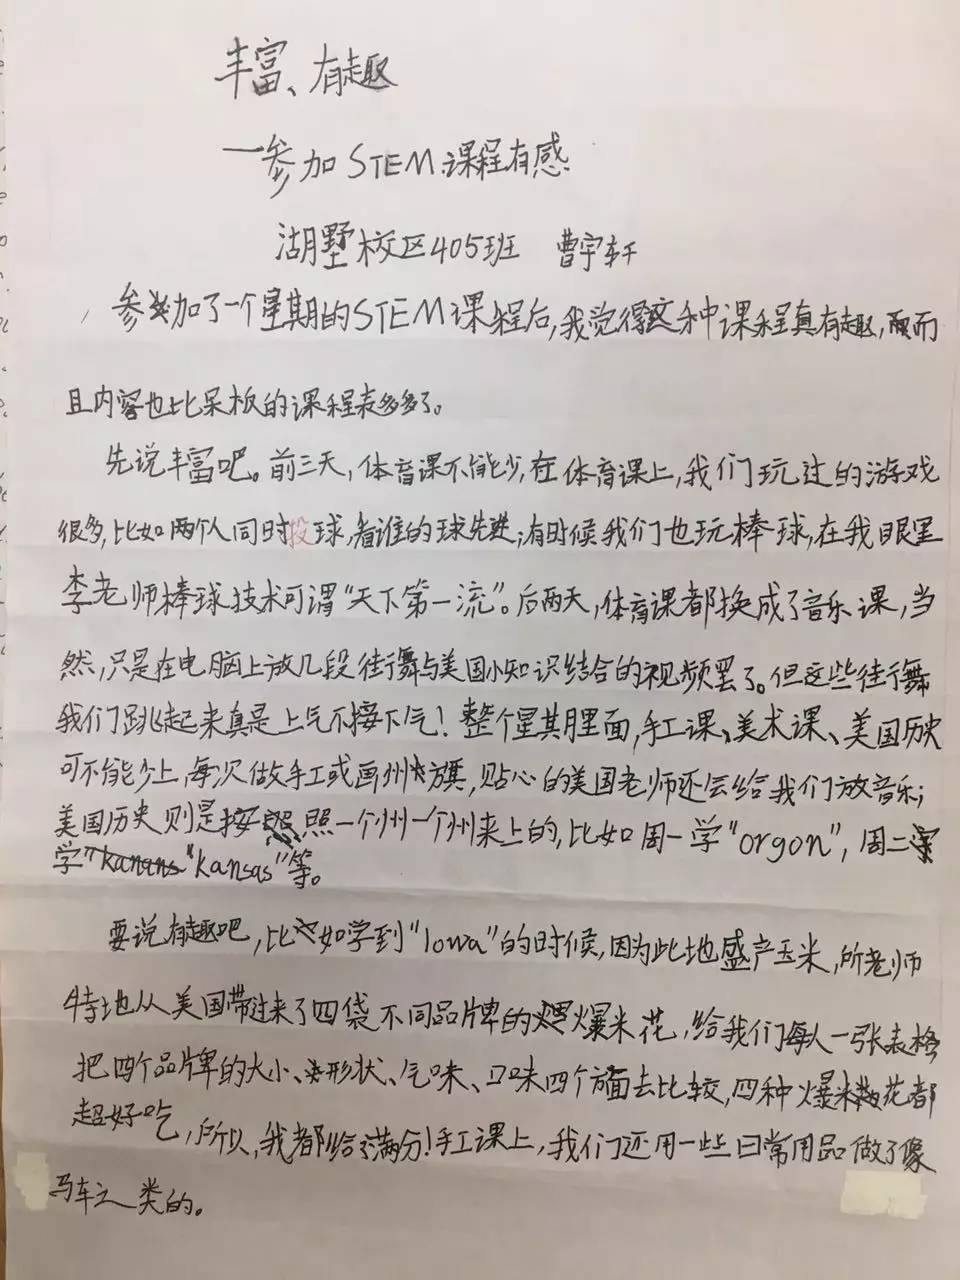 丰富、有趣
一参加STEM课程有感
湖墅校区405班 曹宇轩
参加了一个星期的STEM课程后,我觉得这种课程真有趣,而
且内容也比呆板的课程表多多了。
先说丰富吧。前三天,体育课不能少,在体育课上,我们玩过的游戏
很多,比如两个人同时投球,看谁的球先进;有时候我们也玩棒球,在我眼里
李老师棒球技术可谓“天下第一流”。后两天,体育课都换成了音乐课,当
然,只是在电脑上放几段街舞与美国小知识结合的视频罢了。但这些街舞
我们跳起来真是上气不接下气!整个星期里面,手工课、美术课、美国历史
可不能少上,每次做手工或画州旗,贴心的美国老师还会给我们放音乐;
美国历史则是按照一个州一个州来上的,比如周一学“orgon”,周二
学“kansas”等。
要说有趣吧,比如学到“Iowa”的时候,因为此地盛产玉米,所老师
特地从美国带过来了四袋不同品牌的爆米花,给我们每人一张表格
把四个品牌的大小、形状、气味、口味四个方面去比较,四种爆米花都
超好吃,所以,我都给了满分!手工课上,我们还用一些日常用品做了像
马车之类的。